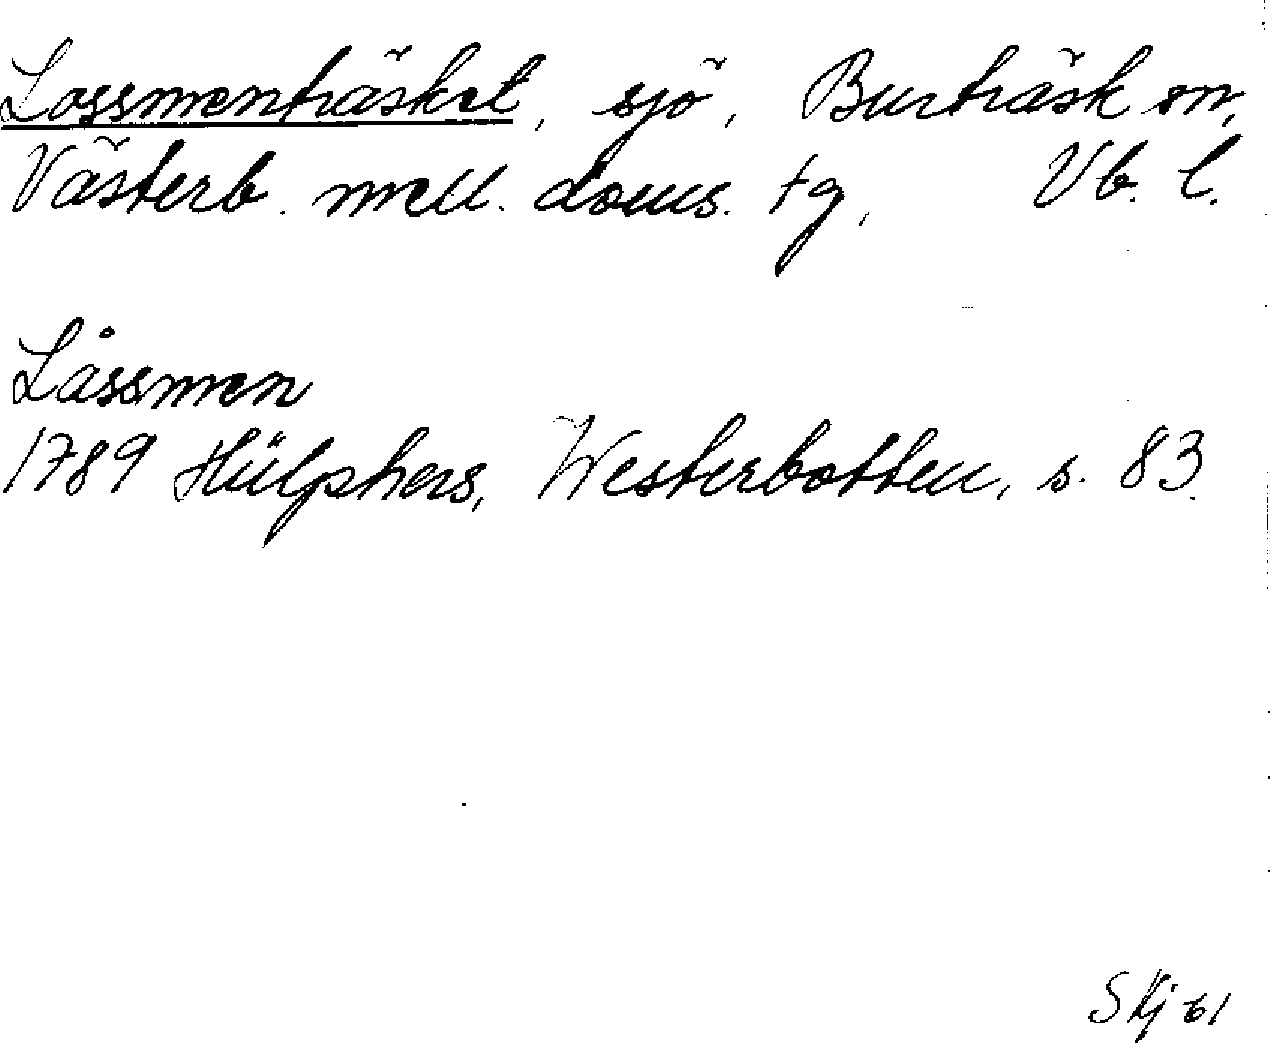 Lossmenträsket, sjö, Burträsk sn,
Västerb. mell. doms. tg, Vb. l.
Låssmen
1789 Hülphers, Westerbotten, s. 83.
SKj 61